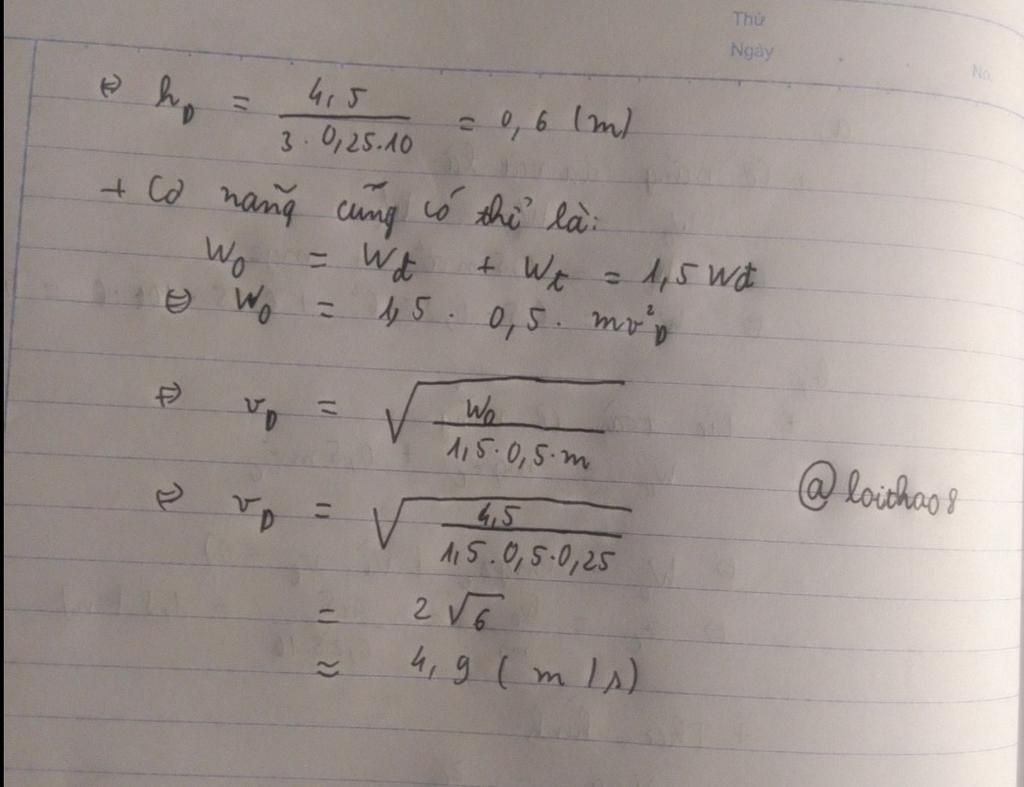 Thứ
Ngày
No.
⇔ h_D = 4,5 / (3 . 0,25.10) = 0,6 (m)
+ Cơ năng cũng có thể là:
W₀ = Wđ + Wt = 1,5 Wđ
⇔ W₀ = 1,5 . 0,5 . mv²_D
⇔ v_D = √(W₀ / (1,5.0,5.m))
⇔ v_D = √(4,5 / (1,5.0,5.0,25))
@loithao8
= 2√6
≈ 4,9 (m/s)